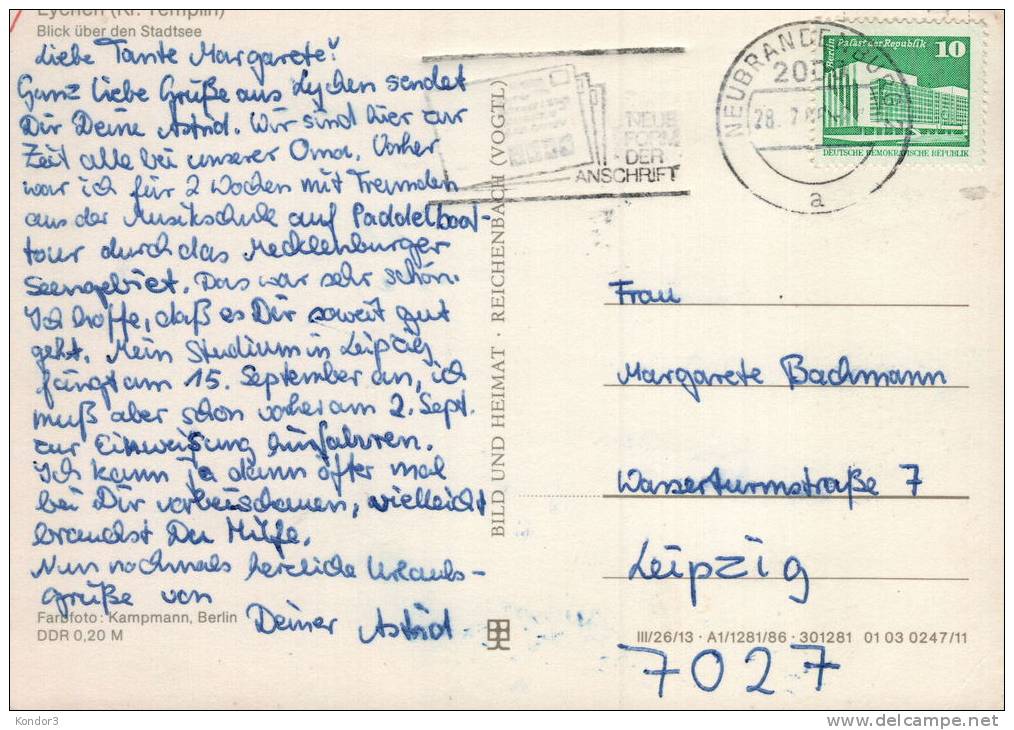 Lychen (Kr. Templin)
Blick über den Stadtsee
Liebe Tante Margarete!
Ganz liebe Grüße aus Lychen sendet
Dir Deine Astrid. Wir sind hier zur
Zeit alle bei unserer Oma. Vorher
war ich für 2 Wochen mit Freunden
aus der Musikschule auf Paddelboot-
tour durch das Mecklenburger
Seengebiet. Das war sehr schön.
Ich hoffe, daß es Dir soweit gut
geht. Mein Studium in Leipzig
fängt am 15. September an, ich
muß aber schon vorher am 2. Sept.
zur Einweisung hinfahren.
Ich kann ja dann öfter mal
bei Dir vorbeischauen, vielleicht
brauchst Du Hilfe.
Nun nochmals herzliche Urlaubs-
grüße von
Deiner Astrid
Farbfoto: Kampmann, Berlin
DDR 0,20 M
BILD UND HEIMAT · REICHENBACH (VOGTL)
NEUE
FORM
DER
ANSCHRIFT
NEUBRANDENBURG
28. 7.
a
Berlin Palast der Republik 10
DEUTSCHE DEMOKRATISCHE REPUBLIK
Frau
Margarete Bachmann
Wasserturmstraße 7
Leipzig
III/26/13 · A1/1281/86 · 301281 01 03 0247/11
7027
Kondor3
www.delcampe.net